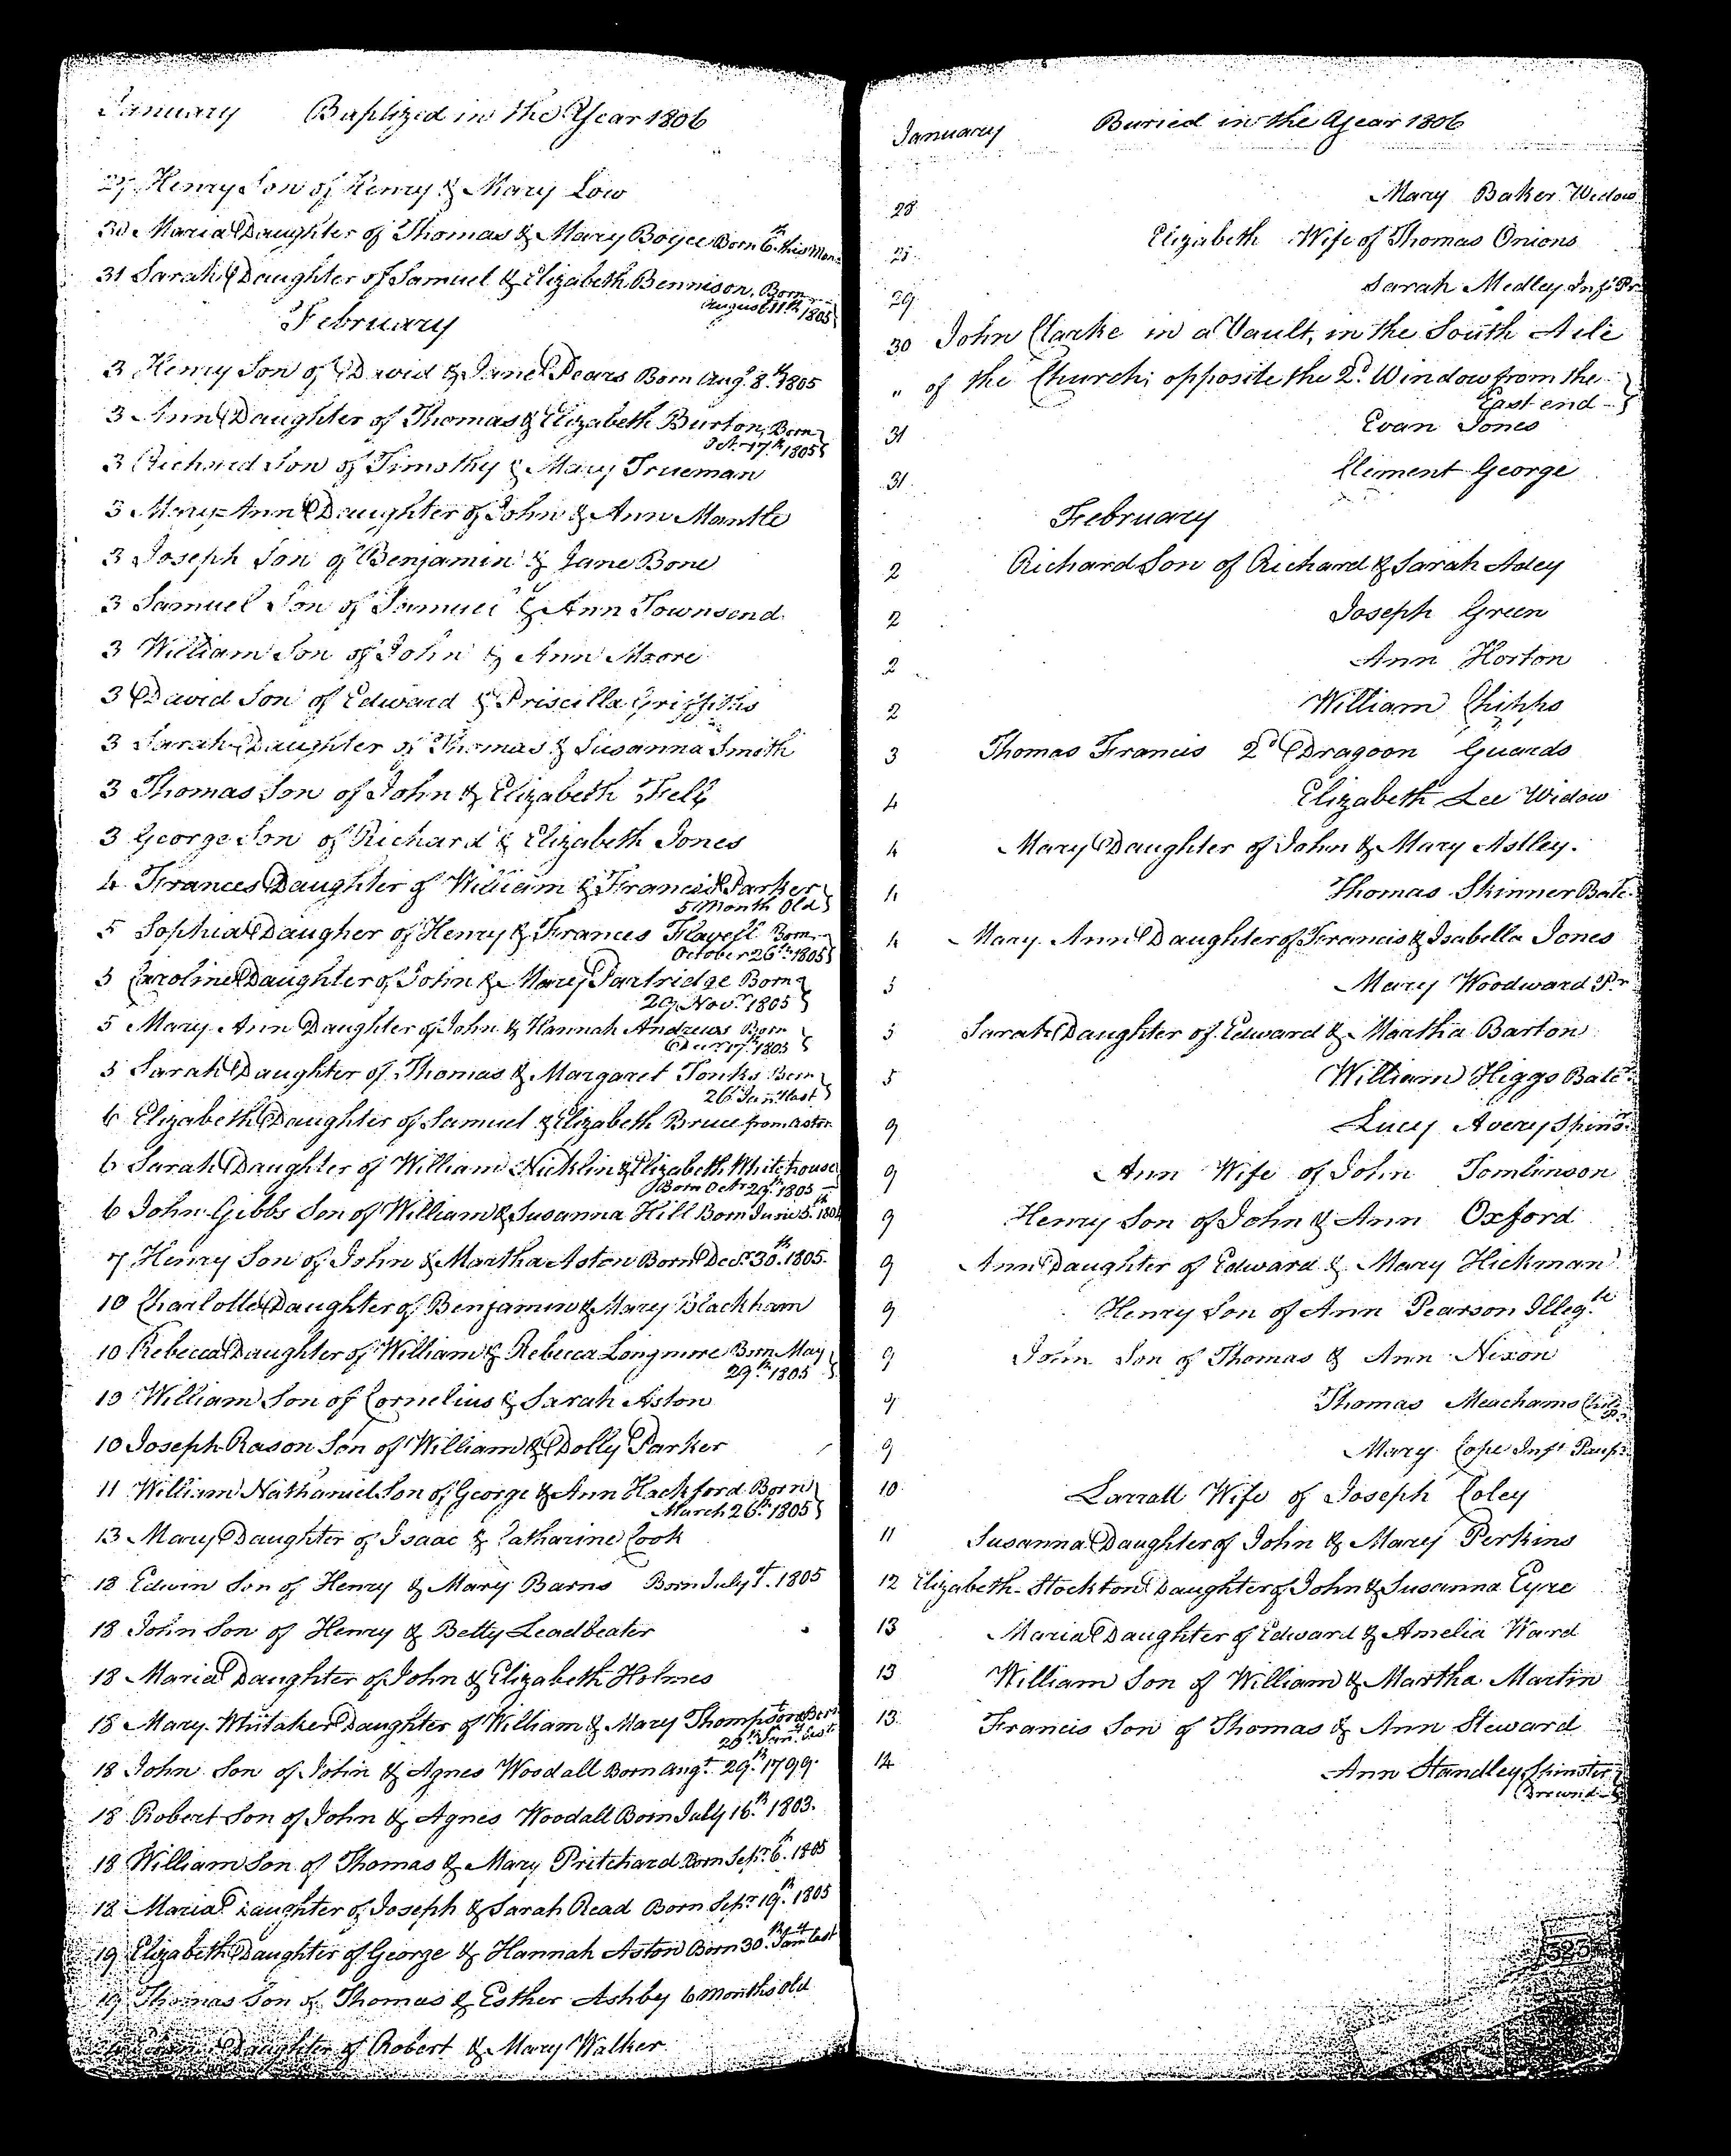 January Baptized in the Year 1806
Henry Son of Henry & Mary Low
30 Maria Daughter of Thomas & Mary Boyce Born 6th this Mon
31 Sarah Daughter of Samuel & Elizabeth Bennison, Born
August 11th 1805
February
3 Henry Son of David & Jane Pears Born Augt 8th 1805
3 Ann Daughter of Thomas & Elizabeth Burton, Born
Octr 17th 1805
3 Richard Son of Timothy & Mary Trueman
3 Mary-Ann Daughter of John & Ann Mantle
3 Joseph Son of Benjamin & Jane Bone
3 Samuel Son of Samuel & Ann Townsend
3 William Son of John & Ann Moore
3 David Son of Edward & Priscilla Griffiths
3 Sarah Daughter of Thomas & Susanna Smith
3 Thomas Son of John & Elizabeth
3 George Son of Richard & Elizabeth Jones
4 Frances Daughter of William & Francis Parker
5 Month Old
5 Sophia Daugher of Henry & Frances Flavell Born
October 26th 1805
5 Caroline Daughter of John & Mary Partridge Born
29 Novr 1805
5 Mary-Ann Daughter of John & Hannah Andrews Born
Decr 17th 1805
5 Sarah Daughter of Thomas & Margaret Tonks Born
26 Jany last
6 Elizabeth Daughter of Samuel & Elizabeth Bruce from Aston
6 Sarah Daughter of William Nicklin & Elizabeth Whitehouse
Born Octr 29th 1805
6 John Gibbs Son of William & Susanna Hill Born June 5th
7 Henry Son of John & Martha Aston Born Decr 30th 1805
10 Charlotte Daughter of Benjamin & Mary Blackham
10 Rebecca Daughter of William & Rebecca Longmore Born May
29th 1805
10 William Son of Cornelius & Sarah Aston
10 Joseph Rason Son of William & Dolly Parker
11 William Nathaniel Son of George & Ann Hackford Born
March 26th 1805
13 Mary Daughter of Isaac & Catharine Cook
18 Edwin Son of Henry & Mary Barns Born July 1st 1805
18 John Son of Henry & Betty Leadbeater
18 Maria Daughter of John & Elizabeth Holmes
18 Mary Whitaker Daughter of William & Mary Thompson Born
Jany last
18 John Son of John & Agnes Woodall Born Augt 29th 1799
18 Robert Son of John & Agnes Woodall Born July 16th 1803
18 William Son of Thomas & Mary Pritchard Born Sepr 6th 1805
18 Maria Daughter of Joseph & Sarah Read Born Sepr 19th 1805
19 Elizabeth Daughter of George & Hannah Aston Born 30th Jany last
19 Thomas Son of Thomas & Esther Ashby 6 Months Old
Daughter of Robert & Mary Walker
January Buried in the Year 1806
28 Mary Baker Widow
Elizabeth Wife of Thomas Onions
29 Sarah Medley Inft Pr
30 John Clarke in a Vault, in the South Aile
" of the Church; opposite the 2d Window from the
East end
31 Evan Jones
31 Clement George
February
2 Richard Son of Richard & Sarah Adey
2 Joseph Green
2 Ann Horton
2 William Chipps
3 Thomas Francis 2d Dragoon Guards
4 Elizabeth Lee Widow
4 Mary Daughter of John & Mary Astley
4 Thomas Skinner Batc
4 Mary Ann Daughter of Francis & Isabella Jones
5 Mary Woodward Pr
5 Sarah Daughter of Edward & Martha Barton
5 William Higgs Batcr
9 Lucy Avery Spinsr
9 Ann Wife of John Tomlinson
9 Henry Son of John & Ann Oxford
9 Ann Daughter of Edward & Mary Hickman
9 Henry Son of Ann Pearson Illegte
9 John Son of Thomas & Ann Nixon
9 Thomas Meachams
9 Mary Cope Inft Paupr
10 Larratt Wife of Joseph Coley
11 Susanna Daughter of John & Mary Perkins
12 Elizabeth-Stockton Daughter of John & Susanna Eyre
13 Maria Daughter of Edward & Amelia Ward
13 William Son of William & Martha Martin
13 Francis Son of Thomas & Ann Steward
14 Ann Standley Spinster
Drownd